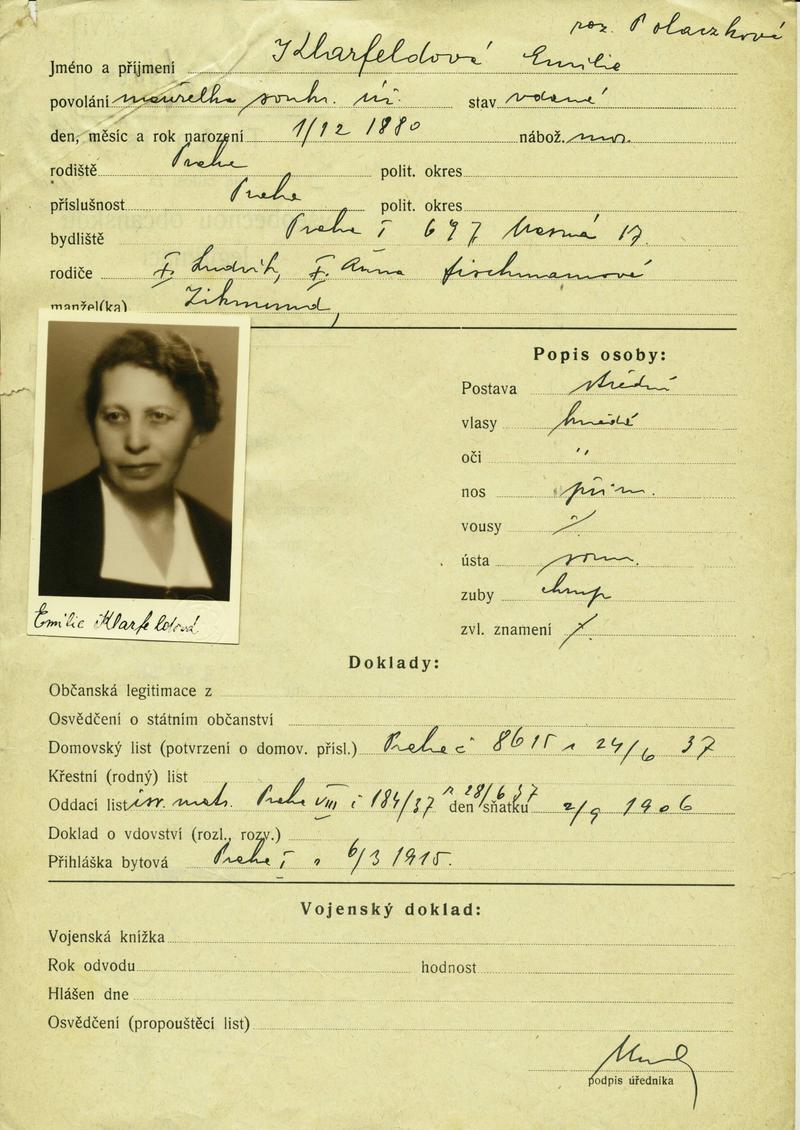 roz. Polaczková
Jméno a příjmení Klarfeldová Emilie
povolání manželka soukr. úř. stav vdaná
den, měsíc a rok narození 1/12 1880 nábož.
rodiště Praha polit. okres
příslušnost Praha polit. okres
bydliště Praha I 697 17.
rodiče Ludvík, Anna Fischmannová
manžel(ka) Zikmund,
Popis osoby:
Postava střední
vlasy hnědé
oči "
nos přím.
vousy
ústa soum.
zuby
zvl. znamení
Emilie Klarfeldová
Doklady:
Občanská legitimace z
Osvědčení o státním občanství
Domovský list (potvrzení o domov. přísl.) Praha č 8615 z 24/6 37
Křestní (rodný) list
Oddací list isr. matr. Praha VIII č 184/37 z 28/6 37 den sňatku 2/9 1906
Doklad o vdovství (rozl., rozv.)
Přihláška bytová Praha I z 6/3 1915.
Vojenský doklad:
Vojenská knížka
Rok odvodu hodnost
Hlášen dne
Osvědčení (propouštěcí list)
podpis úředníka